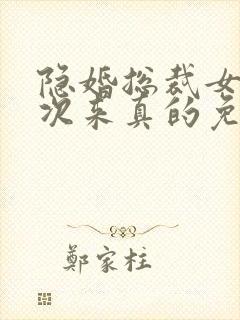 隐婚总裁女
次来真的免
鄭家柱